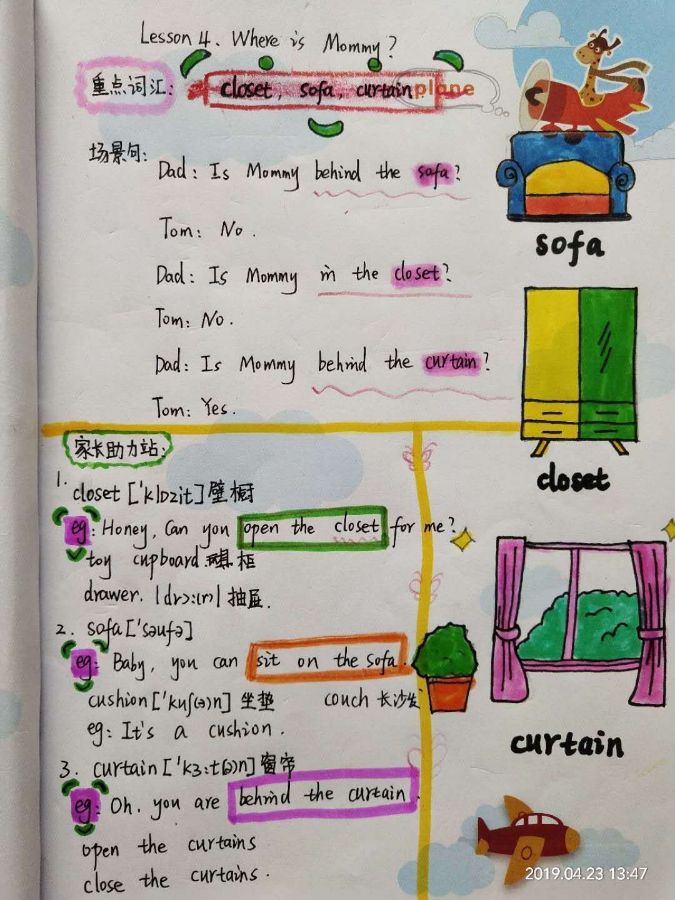 Lesson 4. Where is Mommy?
重点词汇: closet, sofa, curtain.
plane
场景句:
Dad: Is Mommy behind the sofa?
Tom: No.
Dad: Is Mommy in the closet?
Tom: No.
Dad: Is Mommy behind the curtain?
Tom: Yes.
sofa
closet
curtain
家长助力站:
1. closet ['klɒzit] 壁橱
eg: Honey, Can you open the closet for me?
toy cupboard 玩具柜
drawer. 抽屉.
2. sofa ['səufə]
eg: Baby, you can sit on the sofa.
cushion ['kuʃ(ə)n] 坐垫 couch 长沙发
eg: It's a cushion.
3. curtain ['kɜ:t(ə)n] 窗帘
eg: Oh, you are behind the curtain.
open the curtains
close the curtains.
2019.04.23 13:47